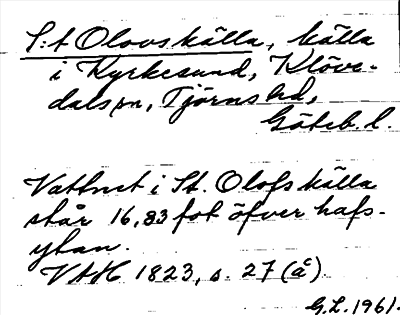 S:t Olovs källa, källa
i Kyrkesund, Klöve-
dals sn, Tjörns hd,
Göteb. l.
Vattnet i St. Olofs källa
står 16,83 fot öfver hafs-
ytan.
VAH 1823, s. 27 (å)
G.L. 1961.